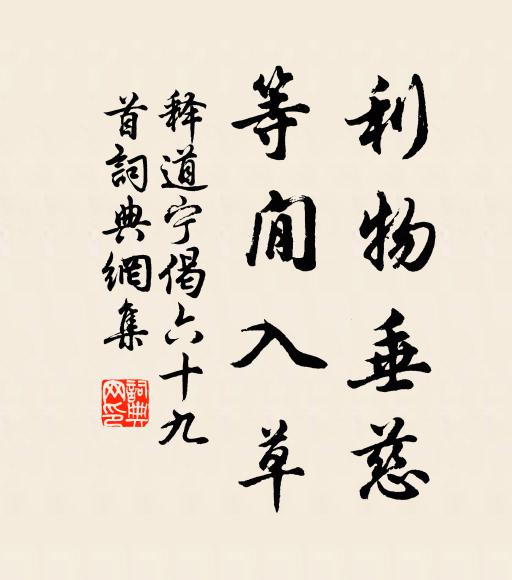 利物垂慈
等閒入草
释道宁偈六十九
首詞典網集
詞典
网印